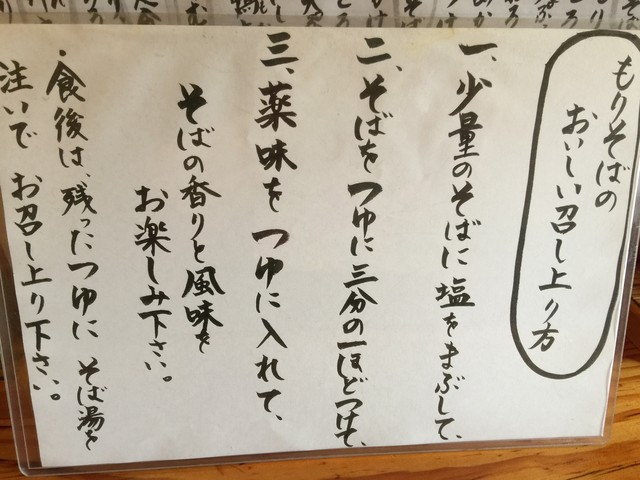 もりそばの
おいしい召し上り方
一、少量のそばに塩をまぶして、
二、そばをつゆに三分の一ほどつけて、
三、薬味をつゆに入れて、
そばの香りと風味を
お楽しみ下さい。
・食後は、残ったつゆにそば湯を
注いでお召し上り下さい。